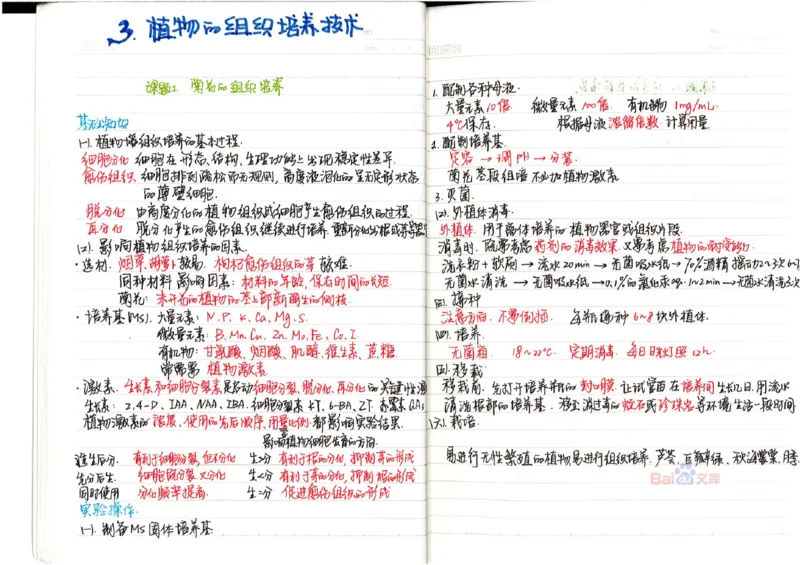 3. 植物的组织培养技术
课题1. 菊花的组织培养
基础知识
(一). 植物组织培养的基本过程.
细胞分化 细胞在形态、结构、生理功能上出现稳定性差异.
愈伤组织. 细胞排列疏松而无规则, 高度液泡化的呈无定形状态
的薄壁细胞.
脱分化 由高度分化的植物组织或细胞产生愈伤组织的过程.
再分化 脱分化产生的愈伤组织继续进行培养. 重新分化出根或芽等器官
(二). 影响植物组织培养的因素.
·选材. 烟草, 胡萝卜较易. 枸杞愈伤组织的芽较难.
同种材料 影响因素: 材料的年龄, 保存时间的长短.
菊花: 未开花的植物的茎上部新萌生的侧枝
·培养基(MS). 大量元素: N. P. K. Ca. Mg. S.
微量元素: B. Mn. Cu. Zn. Mo. Fe. Co. I.
有机物: 甘氨酸、烟酸、肌醇、维生素、蔗糖
常需要 植物激素.
·激素. 生长素和细胞分裂素是启动细胞分裂、脱分化、再分化的关键性激
生长素: 2,4-D. IAA. NAA. IBA. 细胞分裂素 KT. 6-BA. ZT. 赤霉素 GA3
植物激素的浓度、使用的先后顺序, 用量比例 都影响实验结果.
影响植物细胞发育的方向.
先生后分. 有利于细胞分裂, 但不分化 生>分 有利于根的分化, 抑制芽的形成
先分后生. 细胞既分裂又分化 生<分 有利于芽的分化, 抑制根的形成
同时使用 分化频率提高. 生=分 促进愈伤组织的形成
实验操作.
(一). 制备MS固体培养基
1. 配制各种母液.
大量元素10倍 微量元素100倍. 有机物 1mg/mL.
4℃保存. 根据母液 浓缩倍数 计算用量.
2. 配制培养基.
定容 → 调PH → 分装
菊花茎段组培 不必加植物激素.
3. 灭菌.
(二). 外植体消毒.
外植体. 用于离体培养的植物器官或组织片段.
消毒时, 既要考虑 药剂的消毒效果. 又要考虑植物的耐受能力.
洗衣粉+软刷 → 流水20min → 无菌吸水纸 → 70%酒精 摇动2~3次 6~
无菌水清洗 → 无菌吸水纸 → 0.1%的氯化汞 1~2min → 无菌水清洗3次
接种
注意方向. 不要倒插. 每瓶接种 6~8块外植体.
(四). 培养
无菌箱. 18~22℃. 定期消毒. 每日日光灯照 12h.
移栽
移栽前. 先打开培养瓶的封口膜. 让试管苗在培养间生长几日. 用流水
清洗根部的培养基. 移至消过毒的蛭石或珍珠岩等环境生活一段时间
(六). 栽培.
易进行无性繁殖的植物易进行组织培养. 芦荟, 豆瓣绿, 秋海棠
Bai 文库